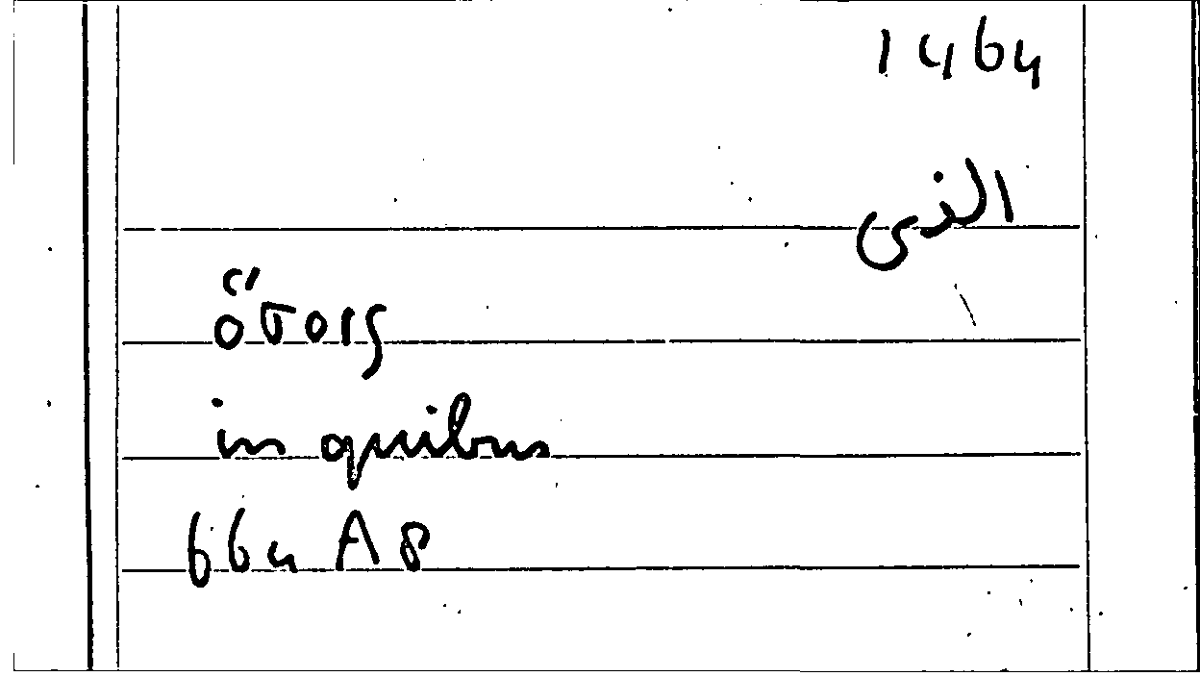 1464
الذى
ὅσοις
in quibus
66a A8